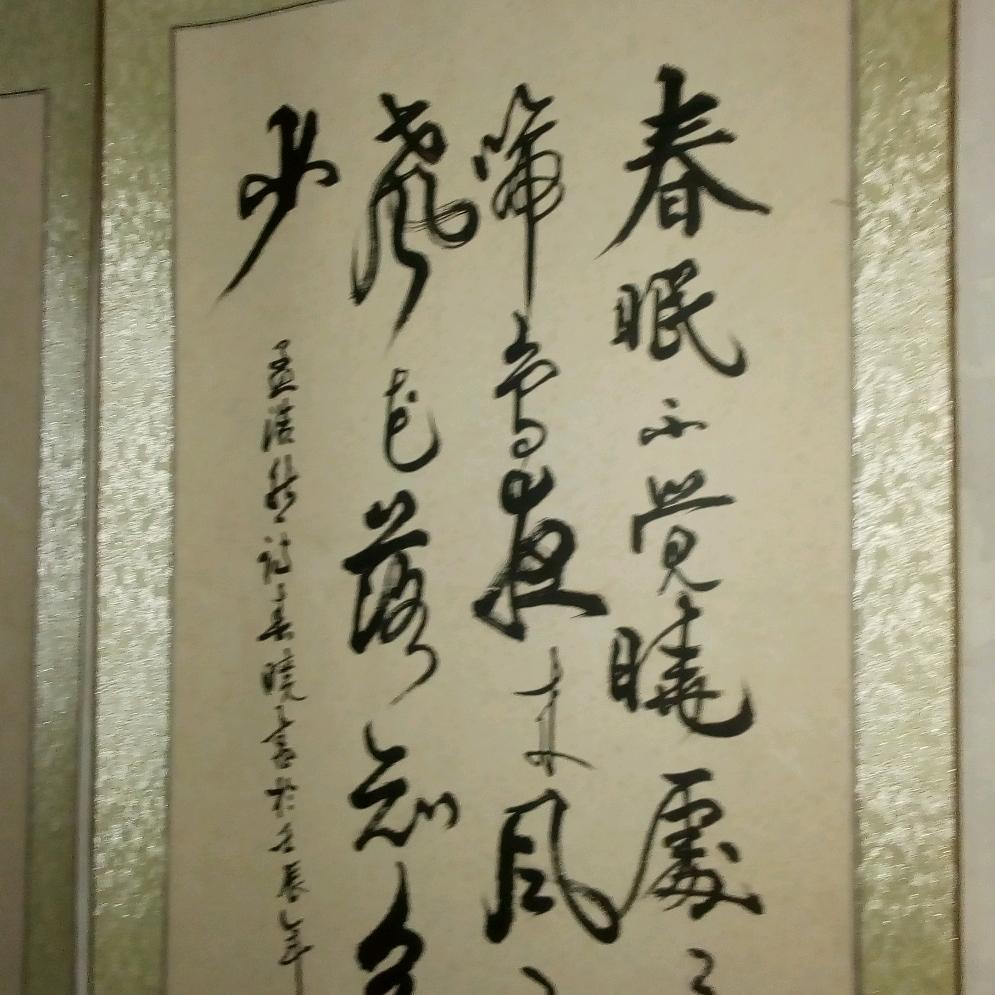 春眠不覺曉處々
啼鳥夜来風
聲花落知多
少
孟浩然詩春曉書於壬辰年